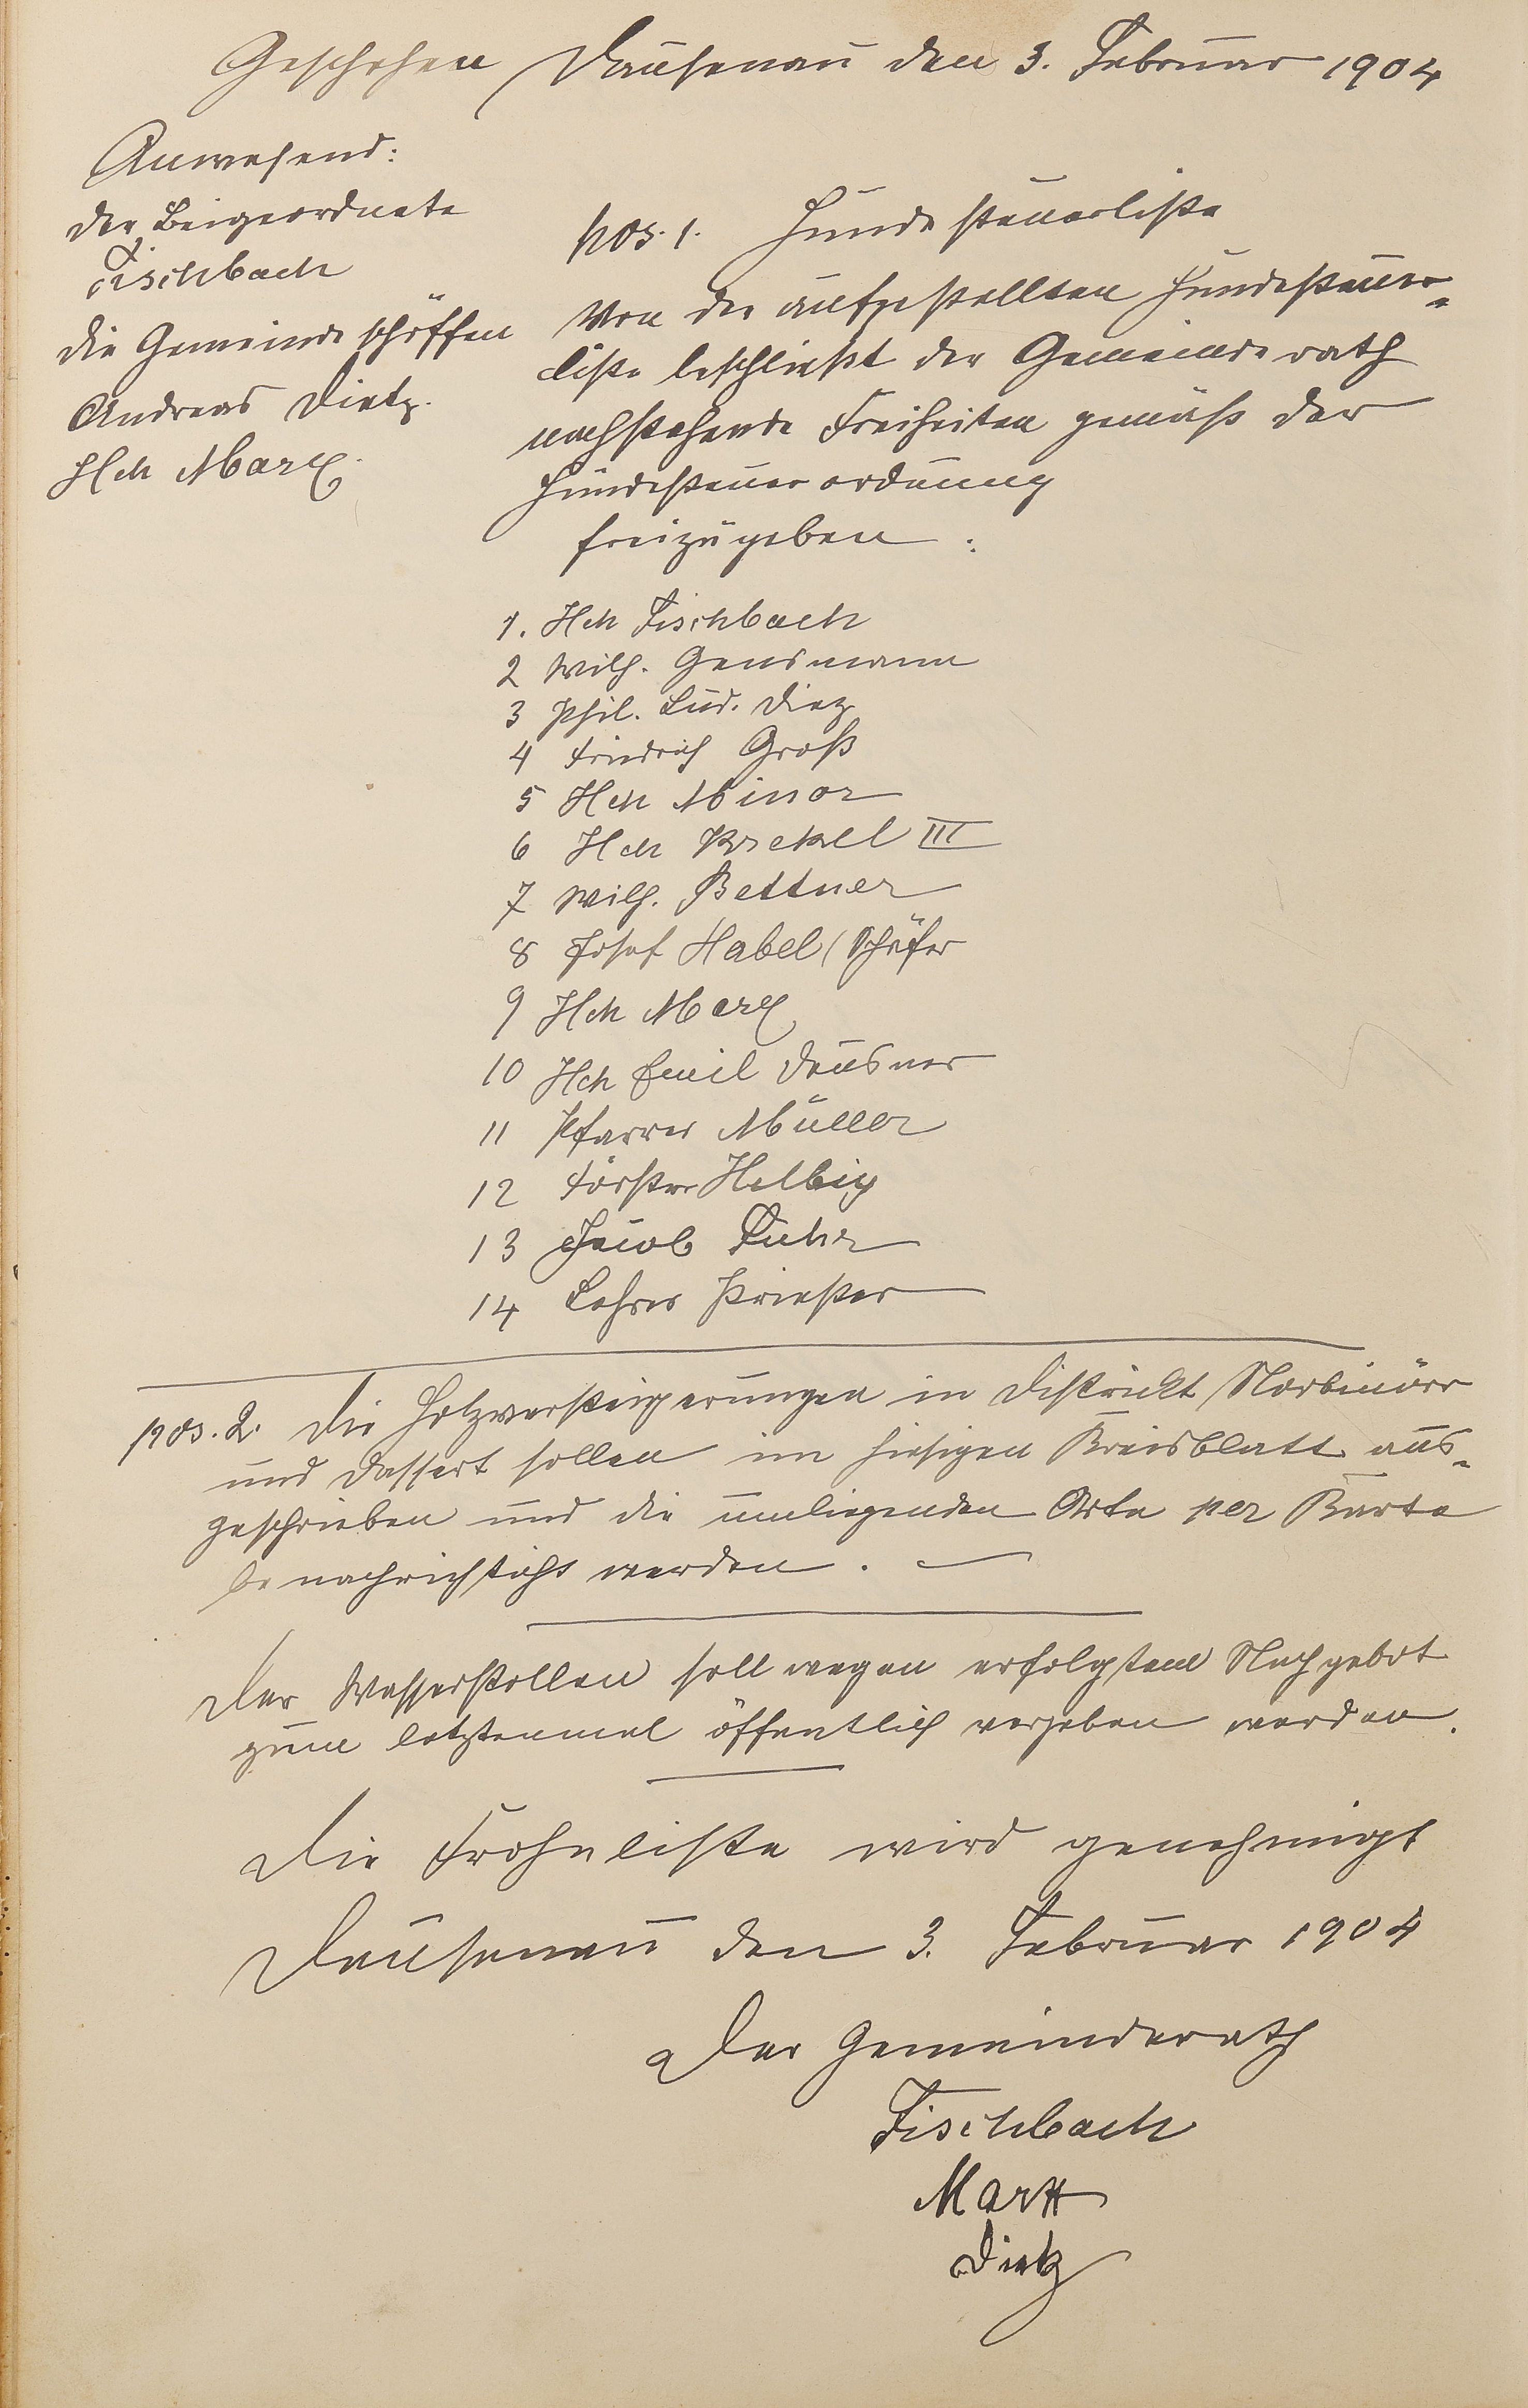 Geschehen Dausenau den 3. Februar 1904
Anwesend:
der Beigeordnete
Fischbach
die Gemeindeschöffen
Andreas Dietz.
Hch Marx.
pos. 1. Hundesteuerliste
Von der aufgestellten Hundesteuer-
liste beschließt der Gemeinderath
nachstehende Freiheiten gemäß der
Hundesteuerordnung
freizugeben :
1. Hch Fischbach
2 Wilh. Gensmann
3 Phil. Lud. Dietz
4 Friedrich Groß
5 Hch Minor
6 Hch Krekel III
7 Wilh. Bettner
8 Josef Habel (Schäfer
9 Hch Marx
10 Hch Emil Dausner
11 Pfarrer Müller
12 Förster Helbig
13 Jacob Fuhr
14 Lehrer Priester
pos. 2. Die Holzversteigerungen in Distrikt
und Dassert sollen im hiesigen Kreisblatt aus-
geschrieben und die umliegenden Orte per Karte
benachrichtigt werden.
Der Wasserstollen soll wegen erfolgtem Nachgebot
zum letztenmal öffentlich vergeben werden.
Die Frohnliste wird genehmigt
Dausenau den 3. Februar 1904
Der Gemeinderath
Fischbach
Marx
Dietz